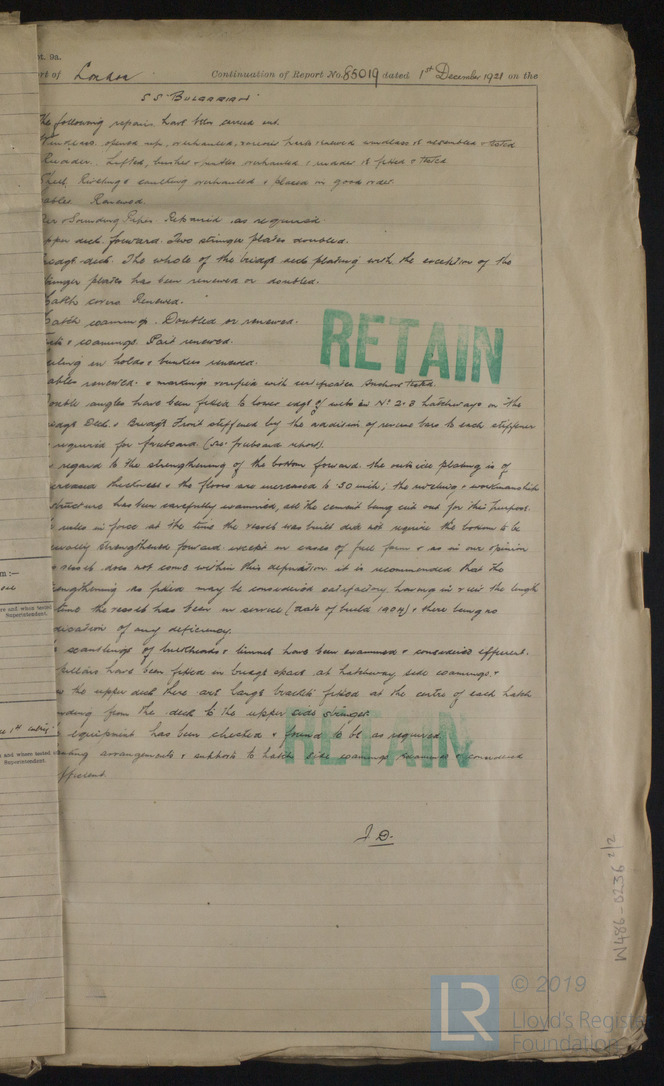 pt. 9a.
rt of London Continuation of Report No. 85019 dated 1st December 1921 on the
S S "BULGARIAN"
The following repairs have been carried out.
Windlass opened up, overhauled, various parts renewed windlass re assembled & tested
Rudder. Lifted, bushes & pintles overhauled & rudder re fitted & tested
Shell Riveting & caulking overhauled & placed in good order.
ables Renewed.
Air & Sounding Pipes Repaired as required
pper deck forward. Two stringer plates doubled.
ridge deck. The whole of the bridge side plating with the exception of the
tringer plates has been renewed or doubled.
Hatch covers Renewed.
Hatch coamings. Doubled or renewed.
& coamings. Part renewed.
eiling in holds & bunkers renewed.
ables renewed & markings verified with certificates Anchors tested.
ouble angles have been fitted to lower edge of webs in No 2 & 3 hatchways on the
ridge Deck & Bridge Front stiffened by the addition of reverse bars to each stiffener
required for freeboard. (see freeboard report).
regard to the strengthening of the bottom forward the outside plating is of
creased thickness & the floors are increased to .50 inch; the riveting & workmanship
structure has been carefully examined, all the cement being cut out for this purpose.
rules in force at the time the vessel was built did not require the bottom to be
ecially strengthened forward except in cases of full form & as in our opinion
vessel does not come within this definition it is recommended that the
rengthening as fitted may be considered satisfactory having in view the length
time the vessel has been in service (date of build 1904) & there being no
dication of any deficiency.
scantlings of bulkheads & tunnel have been examined & considered efficient.
pillars have been fitted in bridge space at hatchway side coamings &
the upper deck there are large brackets fitted at the centre of each hatch
nding from the deck to the upper side stringer
equipment has been checked & found to be as required.
arrangements & supports to hatch side coamings examined & considered
fficient.
J. D.
RETAIN
RETAIN
m :—
Superintendent.
Superintendent.
W486-0236 2/2
LR © 2019
Lloyd's Register
Foundation